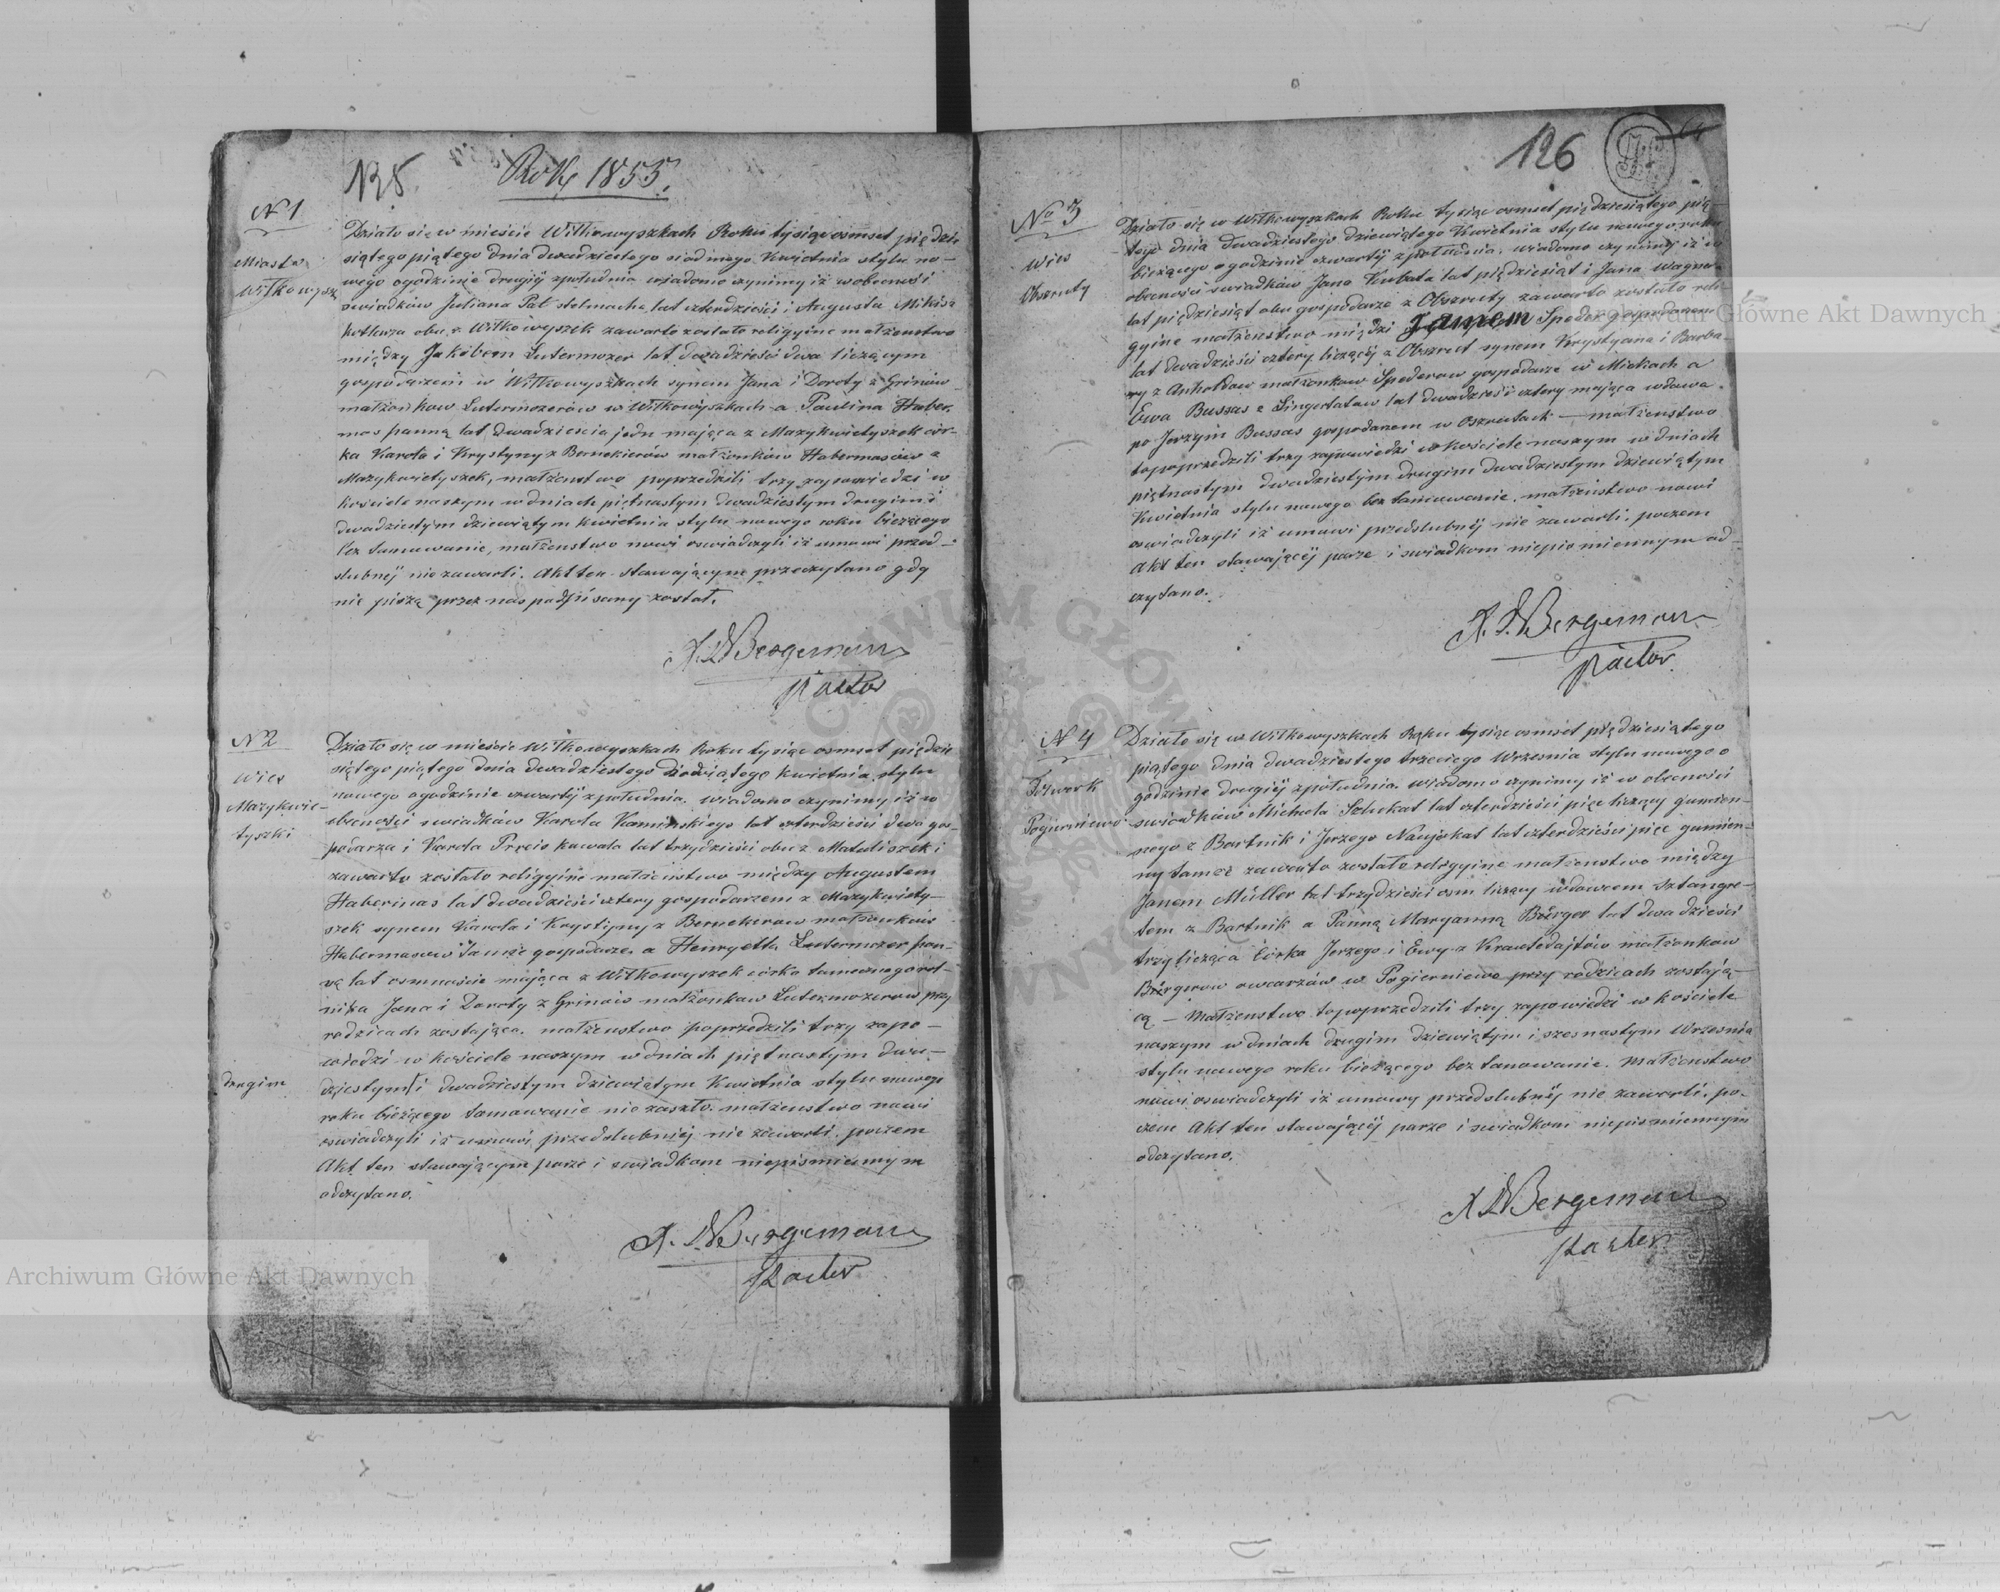 Rok 1855.
N 1
Miasto
Wiłkowyszk
Działo się w mieście Wiłkowyszkach Roku tysiąc osmset pięćdzie
siątego piątego dnia dwudziestego siodmego Kwietnia stylu no-
wego ogodzinie drugiy zpołudnia wiadomo czynimy iż wobecności
swiadków Juliana Pat stelmacha, lat czterdzieści i Augusta Mikisz
kotlarza obu z Wiłkowyszek zawarte zostało religyine małżenstwo
między Jakóbem Lutermozer lat dwadzieścia dwa liczącym
gospodarzem w Wiłkowyszkach synem Jana i Doroty z Grinów
małżonkow Lutermozerów w Wiłkowyszkach a Paulina Haber
mas panną lat dwadziescia jedn mająca z Mazykwietyszek cór-
ka Karola i Krystyny z Bernekierów małżonków Habermasów z
Mazykwietyszek, małżenstwo poprzedzili trzy zapowiedzi w
kościele naszym w dniach piętnastym dwudziestym drugim i
dwudziestym dziewiątym kwietnia stylu nowego roku bieżącego
bez tamowanie, małżenstwo nowi oswiadczyli iż umowi przed-
slubnéj nie zawarli. Akt ten stawającym przeczytano gdy
nie piszą przez nas podpisany został.
Bergemann
Pastor
N 2
Wies
Mazykwie-
tyszki
Działo się w mieście Wiłkowyszkach Roku tysiąc osmset pięćdzie
siątego piątego dnia dwudziestego dziewiątego kwietnia stylu
nowego ogodzinie czwartéj zpołudnia. wiadomo czynimy iż w
obecności swiadków Karola Kaminskiego lat czterdzieści dwa gos-
podarza i Karola Prycio kowala lat trzydzieści obu z Matuliszek i
zawarto zostało religyine małżeństwo między Augustem
Habermas lat dwadzieści cztery gospodarzem z Mazykwiety-
szek synem Karola i Krystyny z Bernekieraw małżonkow
Habermasow tamże gospodarze. a Henryetta Lutermozer pan-
ną lat osmnaście mająca z Wiłkowyszek córka tamecznego rol-
nika Jana i Doroty z Grinów małżonkow Lutermozerow przy
rodzicach zostająca. małżenstwo poprzedzili trzy zapo-
wiedzi w kościele naszym w dniach piętnastym dwu-
drugim
dziestym i dwudziestym dziewiątym Kwietnia stylu nowego
roku bieżącego tamowanie nie zaszło. małżenstwo nowi
oswiadczyli iż umowi przedslubnéj nie zawarli. poczem
Akt ten stawającym parze i swiadkom niepismiennym
odczytano.
Bergemann
Pastor
126
No 3
Wies
Obszruty
Działo się w Wiłkowyszkach Roku tysiąc osmset pięćdziesiątego pią-
tego dnia dwudziestego dziewiątego Kwietnia stylu nowego roku
bieżącego ogodzinie czwartéj zpołudnia. wiadomo czyniemy iż w
obecności swiadków Jana Kubata lat pięćdziesiąt i Jana Wagner
lat pięćdziesiąt obu gospodarze z Obszruty zawarto zostało reli-
gyine małżenstwo między Janem Speder gospodarzem
lat dwadzieści cztery liczącéj z Obszrut synem Krystyana i Barba-
ry z Anholdow małżonkow Spederow gospodarze w Mickach a
Ewa Bussas z Singertataw lat dwadzieść cztery mająca wdowa
po Jerzym Bussas gospodarzem w Oszrutach — małżenstwo
topoprzedzili trzy zapowiedzi w kościele naszym w dniach
piętnastym dwudziestym drugim dwudziestym dziewiątym
Kwietnia stylu nowego bez tamowanie. małżeństwo nowi
oswiadczyli iż umowi przedslubnéj nie zawarli. poczem
Akt ten stawającéj parze i swiadkom niepismiennym od-
czytano.
Bergemann
Pastor.
N 4
Folwark
Pogierniewo
Działo się w Wiłkowyszkach Roku tysiąc osmset pięćdziesiątego
piątego dnia dwudziestego trzeciego Wrzesnia stylu nowego o
godzinie drugiéj zpołudnia. wiadomo czynimy iż w obecności
swiadków Michała Szlukat lat czterdzieści pięc liczący gumien-
nego z Bartnik i Jerzego Naujokat lat czterdzieści pięc gumien-
ny tamże zawarto zostało religyine małżenstwo między
Janem Müller lat trzydzieści osm liczący wdowcem Sztangre-
tem z Bartnik a Panną Maryanną Bürger lat dwadzieści
trzy licząca Córka Jerzego i Ewy z Krautedajtów małżonkow
Bürgerow owczarzów w Pogierniewo przy rodzicach zostają-
cą — Małżenstwo topoprzedzili trzy zapowiedzi w kościele
naszym w dniach drugim dziewiątym i szesnastym Wrzesnia
stylu nowego roku bieżącego bez tamowanie. Małżenstwo
nowi oswiadczyli iż umowy przedslubnéj nie zawarli, po-
czem Akt ten stawającéj parze i swiadkom niepismiennym
odczytano.
Bergemann
Pastor
Archiwum Główne Akt Dawnych
Archiwum Główne Akt Dawnych